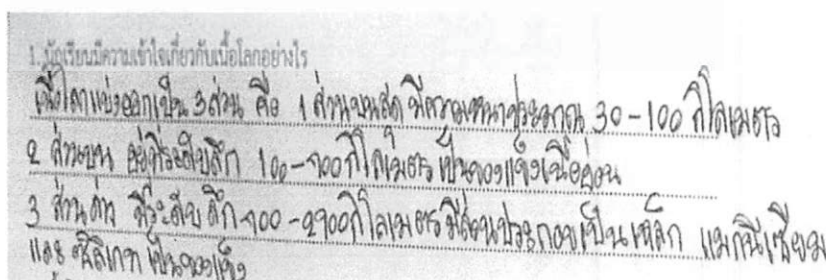 1. นักเรียนมีความเข้าใจเกี่ยวกับเนื้อโลกอย่างไร
เนื้อโลกแบ่งออกเป็น 3 ส่วน คือ 1 ส่วนบนสุด มีความหนาประมาณ 30-100 กิโลเมตร
2 ส่วนบน อยู่ที่ระดับลึก 100-700 กิโลเมตร เป็นของแข็งเนื้ออ่อน
3 ส่วนล่าง มีระดับลึก 700-2900 กิโลเมตร มีส่วนประกอบเป็นเหล็ก แมกนีเซียม
และ ซิลิเกท เป็นของแข็ง